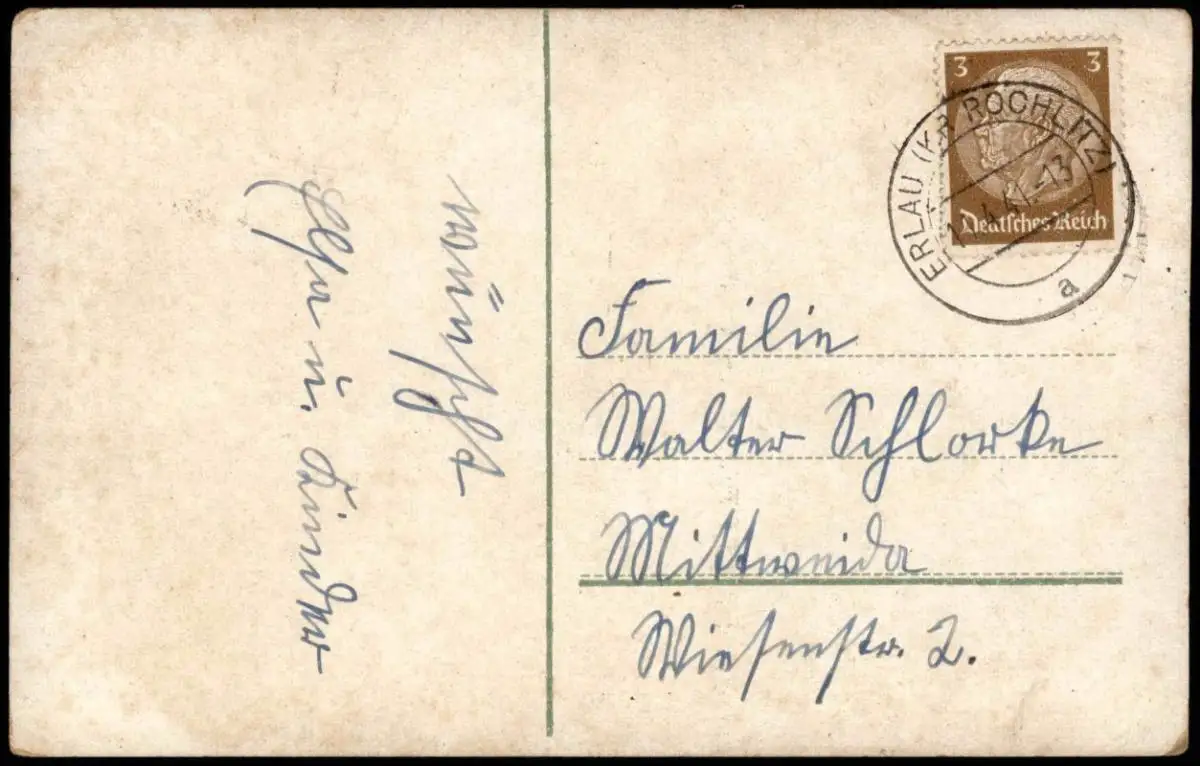 wünscht
u. Kinder
3 3
Deutsches Reich
ERLAU (KR ROCHLITZ)
41.-13
a
Familie
Walter Schlorke
Mittweida
Wiesenstr. 2.